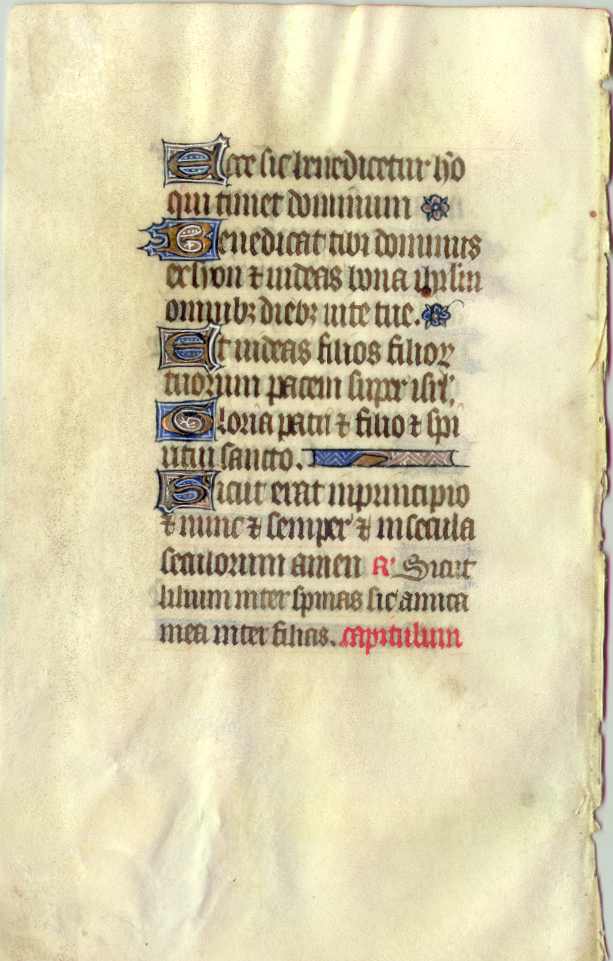 Ecce sic benedicetur ho
qui timet dominum
Benedicat tibi dominus
ex syon ⁊ uideas bona ihrlm
omnibꝫ diebꝫ uite tue.
Et uideas filios filioꝝ
tuorum pacem super isrl'
Gloria patri ⁊ filio ⁊ spi
ritui sancto.
Sicut erat in principio
⁊ nunc ⁊ semper ⁊ in secula
seculorum amen a' Sicut
lilium inter spinas sic amica
mea inter filias. capitulum